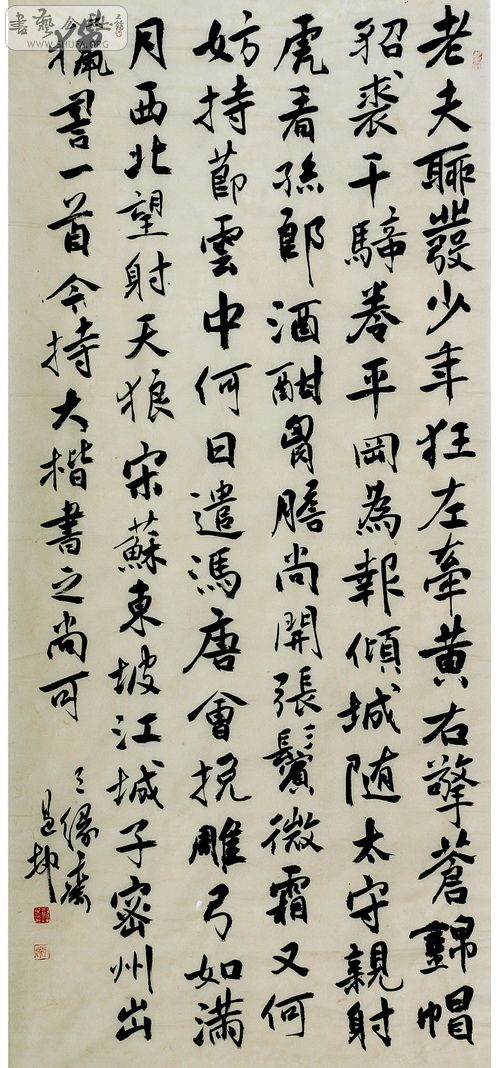 老夫聊發少年狂左牽黃右擎蒼錦帽
貂裘千騎卷平岡為報傾城随太守親射
虎看孫郎酒酣胷膽尚開張鬢微霜又何
妨持節雲中何日遣馮唐會挽雕弓如滿
月西北望射天狼宋蘇東坡江城子密州出
獵詞一首今持大楷書之尚可
三緣齋
坤
書藝公社
WWW.SHUFA.ORG